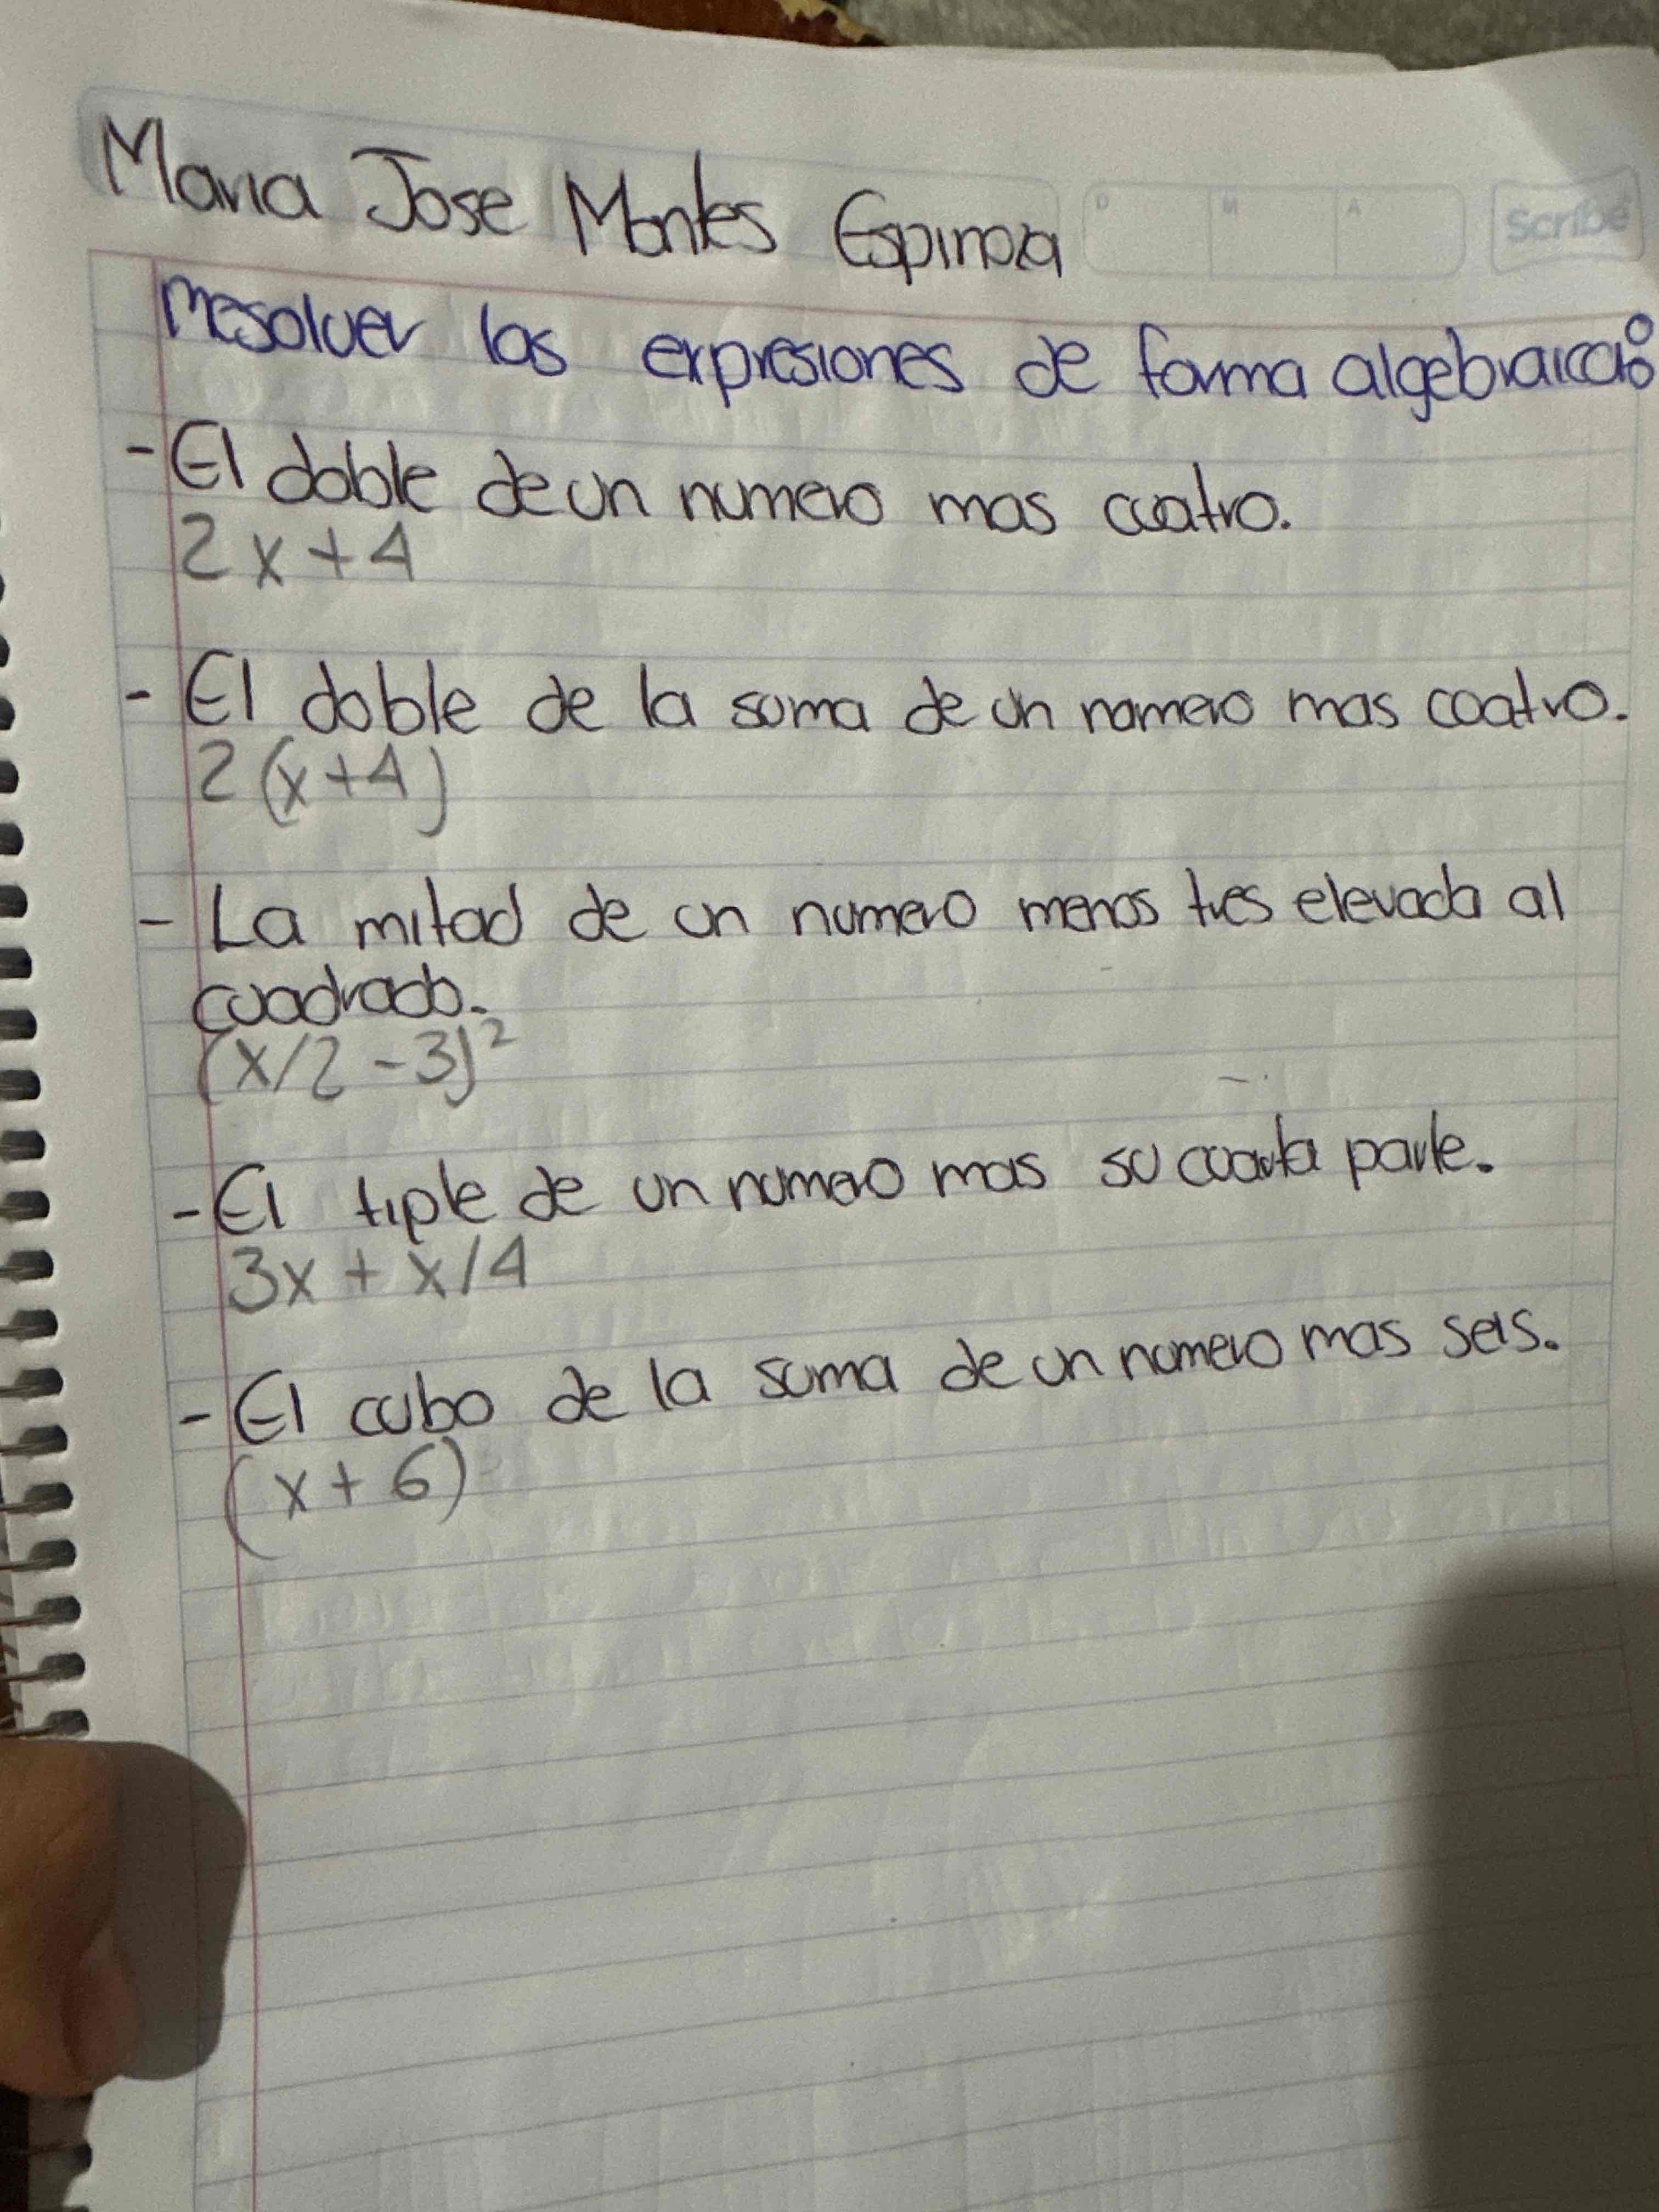 Maria Jose Montes Espinoza
D M A
Scribe
Resolver las expresiones de forma algebraica:
- El doble de un numero mas cuatro.
2x+4
- El doble de la suma de un numero mas cuatro.
2(x+4)
- La mitad de un numero menos tres elevada al
cuadrado.
(x/2 -3)²
- El tiple de un numero mas su cuarta parte.
3x + x/4
- El cubo de la suma de un numero mas seis.
(x+6)